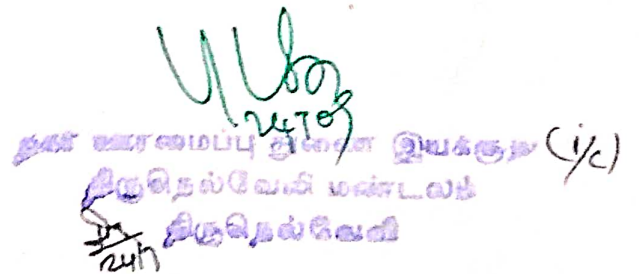 நகர் ஊரமைப்பு துணை இயக்குநர் (i/c)
திருநெல்வேலி மண்டலம்
திருநெல்வேலி
24/7